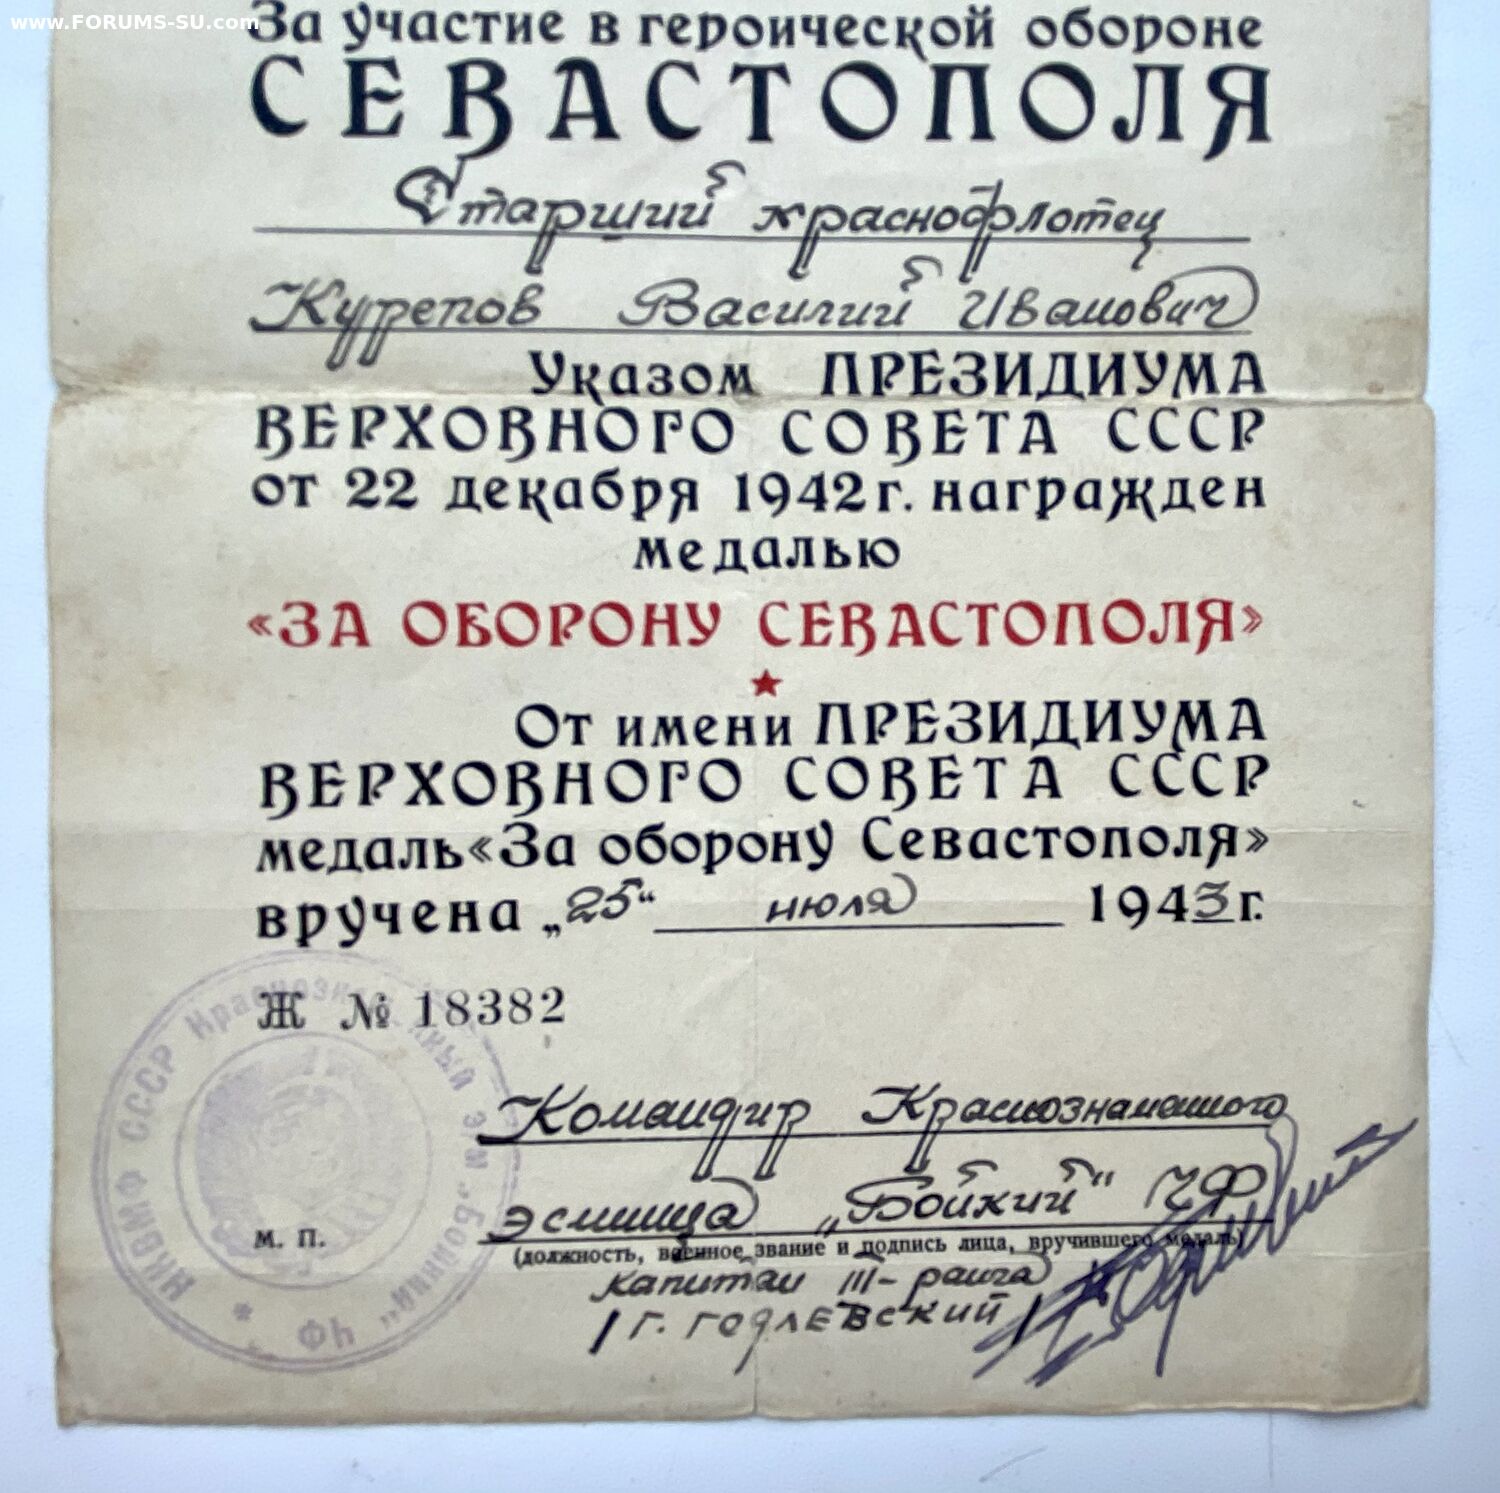 www.FORUMS-SU.com
За участие в героической обороне
СЕВАСТОПОЛЯ
Старший краснофлотец
Курепов Василий Иванович
Указом ПРЕЗИДИУМА
ВЕРХОВНОГО СОВЕТА СССР
от 22 декабря 1942 г. награжден
медалью
«ЗА ОБОРОНУ СЕВАСТОПОЛЯ»
От имени ПРЕЗИДИУМА
ВЕРХОВНОГО СОВЕТА СССР
медаль «За оборону Севастополя»
вручена „25“ июля 1943 г.
Ж № 18382
НКВМФ СССР Краснознаменный эм. „Бойкий“ ЧФ
Командир Краснознаменного
эсминца „Бойкий“ ЧФ
м. п.
(должность, военное звание и подпись лица, вручившего медаль)
капитан III-ранга
/Г. ГОДЛЕВСКИЙ/